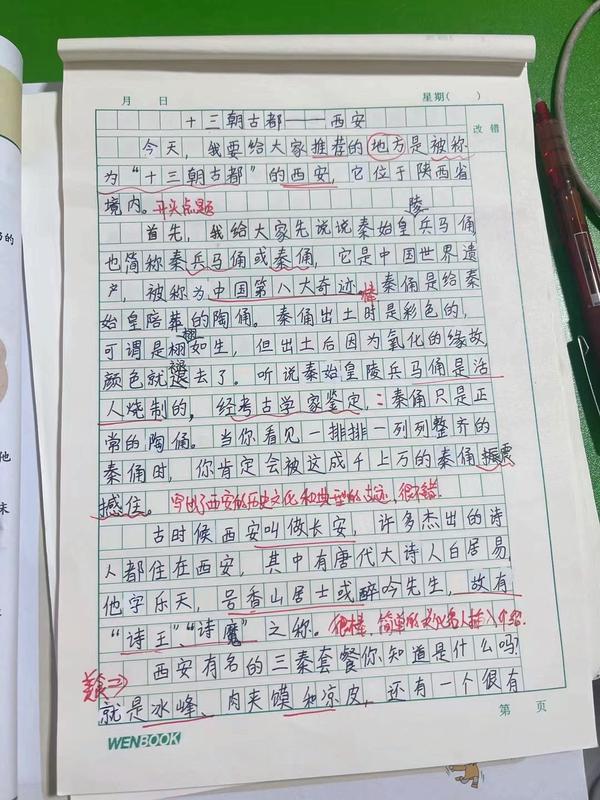 月 日 星期( )
十三朝古都——西安
改错
今天，我要给大家推荐的地方是被称
为“十三朝古都”的西安，它位于陕西省
境内。开头点题
陵
首先，我给大家先说说秦始皇兵马俑，
也简称秦兵马俑或秦俑，它是中国世界遗
产，被称为中国第八大奇迹。秦俑是给秦
始皇陪葬的陶俑。秦俑出土时是彩色的，
可谓是栩如生，但出土后因为氧化的缘故，
颜色就褪去了。听说秦始皇陵兵马俑是活
人烧制的，经考古学家鉴定，：秦俑只是正
常的陶俑。当你看见一排排一列列整齐的
秦俑时，你肯定会被这成千上万的秦俑振震
撼住。写出了西安的历史文化和典型的古迹，很不错。
古时候西安叫做长安，许多杰出的诗
人都住在西安，其中有唐代大诗人白居易，
他字乐天，号香山居士或醉吟先生，故有
“诗王”、“诗魔”之称。很棒，简单的文化名人插入介绍.
西安有名的三秦套餐你知道是什么吗？
美食⇒
就是冰峰、肉夹馍和凉皮，还有一个很有
第 页
WENBOOK